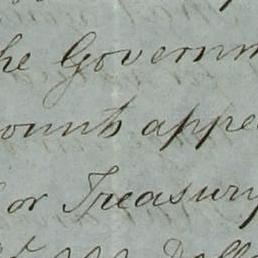 he Governm
ounts appe
or Treasury